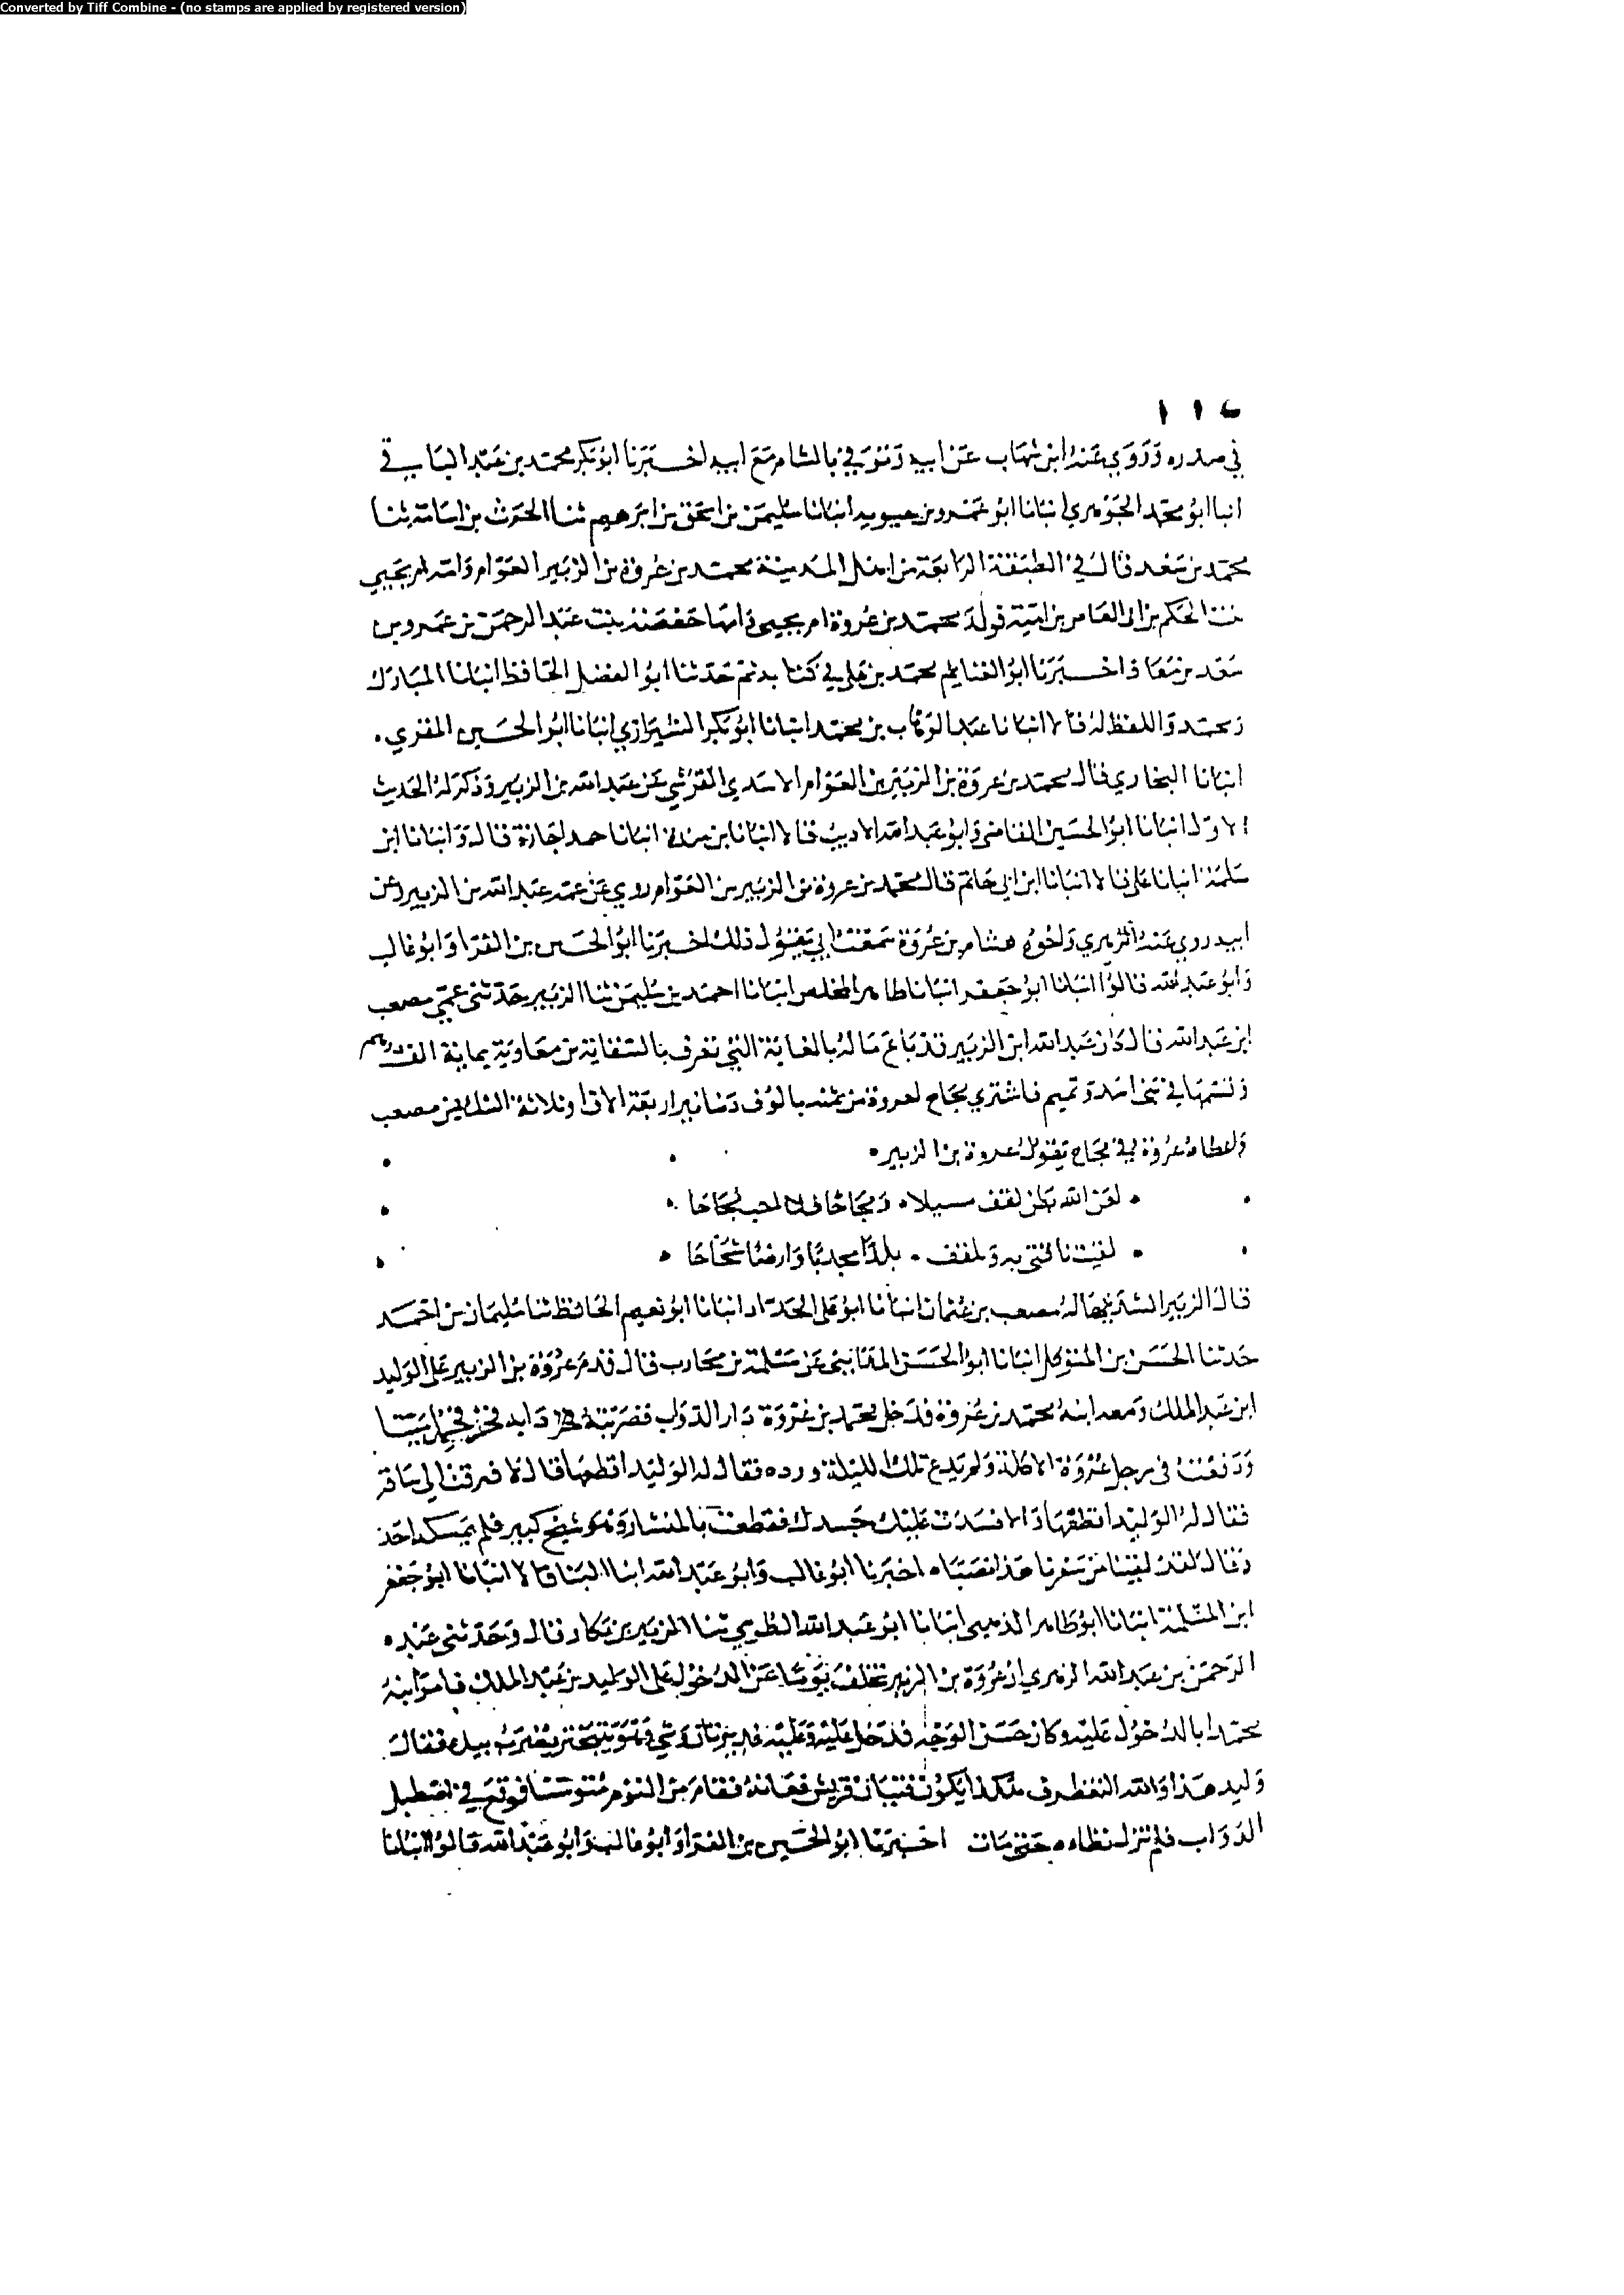 Converted by Tiff Combine - (no stamps are applied by registered version)
في صدره وروي عنه ابن شهاب عن ابيه وتوفي بالشام مع ابيه اخبرنا ابو بكر محمد بن عبد الباقي
انبا ابو محمد الجوهري انبانا ابو عمرو بن حيويه انبانا سليمن بن اسحق بن ابرهيم ثنا الحرث بن اسامة ثنا
محمد بن سعد قال في الطبقة الرابعة من اهل المدينة محمد بن عروة بن الزبير العوام وامه ام يحيي
بنت الحكم بن ابي العاص بن امية فولد محمد بن عروة ام يحيى وامها حفصة بنت عبد الرحمن بن عمرو بن
سعد بن معاذ اخبرنا ابو الغنايم محمد بن علي في كتابه ثم حدثنا ابو الفضل الحافظ انبانا المبارك
ومحمد واللفظ له قالا انبانا عبد الوهاب بن محمد انبانا ابو بكر الشيرازي انبانا ابو الحسين المقري
انبانا البخاري قال محمد بن عروة بن الزبير بن العوام الاسدي القرشي عن عبد الله بن الزبير وذكر له الحديث
الاول انبانا ابو الحسين القاضي وابو عبد الله الاديب قالا انبانا ابن منده انبانا حمد اجازة قال وانبانا ابن
سلمة انبانا علي قالا انبانا ابن ابي حاتم قال محمد بن عروة بن الزبير بن العوام روي عن عمه عبد الله بن الزبير وعن
ابيه روي عنه الزهري واخوه هشام بن عروة سمعت ابي يقول ذلك اخبرنا ابو الحسين بن الفرا وابو غالب
وابو عبد الله قالوا انبانا ابو جعفر انبانا طاهر المخلص انبانا احمد بن سليمن ثنا الزبير حدثني عمي مصعب
ابن عبد الله قال كان عبد الله ابن الزبير قد باع ماله بالغابة التي تعرف بالسقاية من معاوية بماية الف درهم
وقسمها في بني اسد وتميم فاشتري مجاح لعروة من ثمنه بالوف دنانير اربعة الاف او ثلاثة الشك من مصعب
واعطاه عروة في مجاح يقول عروة بن الزبير
لعن الله بطن لقف مسيلا ومجاحا فلا احب مجاحا
لقيت ناقتي به وبلقف بلدا مجدبا وارضا شحاحا
قال الزبير انشدنيها له مصعب بن عثمان انبانا ابو علي الحداد انبانا ابو نعيم الحافظ ثنا سليمان بن احمد
حدثنا الحسن بن المتوكل انبانا ابو الحسن المدايني عن مسلمة بن محارب قال قدم عروة بن الزبير على الوليد
ابن عبد الملك ومعه ابنه محمد بن عروة فدخل محمد بن عروة دار الدواب فضربته دابه فخر فحمل ميتا
ووقعت في رجل عروة الاكلة ولم يدع تلك الليلة ورده فقال له الوليد اقطعها قال لا فرقت الى ساقه
فقال له الوليد اقطعها والا افسدت عليك جسدك فقطعت بالمنشار وهو شيخ كبير فلم يمسكه احد
وقال لقد لقينا من سفرنا هذا نصبا اخبرنا ابو غالب وابو عبد الله ابنا البنا قالا انبانا ابو جعفر
ابن المسلمة انبانا ابو طاهر الذهبي انبانا ابو عبد الله الطوسي ثنا الزبير بن بكار قال وحدثني عبد
الرحمن بن عبد الله الزهري ان عروة بن الزبير تخلف يوما عن الدخول على الوليد بن عبد الملك فامر ابنه
محمدا بالدخول عليه وكان حسن الوجه فدخل عليه وعليه غديرتان وشي وهو يتبختر يضرب بيده فقال
وليد هذا والله التغطرف هكذا يكون فتيان قريش فعانه فقام من النوم متوسنا فوقع في اصطبل
الدواب فلم تزل تطاه حتى مات اخبرنا ابو الحسين بن الفرا وابو غالب وابو عبد الله قالوا انبانا